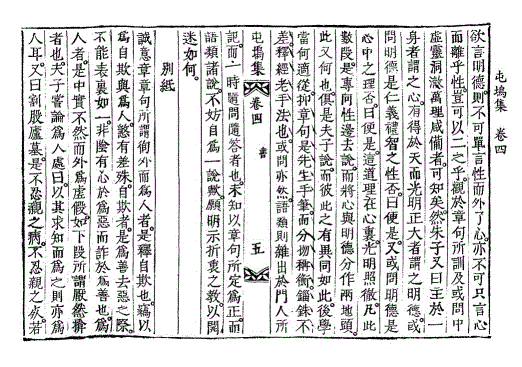 屯塢集 卷四
欲言明德則不可單言性而外了心亦不可只言心
而離乎性豈可以二之乎觀於章句所訓及或問中
虛靈洞澈萬理咸備者可知矣然朱子又曰主於一
身者謂之心有得於天而光明正大者謂之明德或
問明德是仁義禮智之性否曰便是又或問明德是
心中之理否曰便是這道理在心裏光明照徹凡此
數段是專向性邊去說而將心與明德分作兩地頭
此又何也俱是夫子說而彼此之有異同如此後學
當何適從抑章句是先生手筆而分物稱衡錙銖不
差釋經老手法也或問亦然語類則雜出於門人所
屯塢集 卷四 書 五
記而一時隨問隨答者也未知以章句所定爲正而
語類諸說不妨自爲一說歟願明示折衷之敎以開
迷如何
別紙
誠意章章句所謂徇外而爲人者是釋自欺也竊以
爲自欺與爲人該有差殊自欺者是爲善去惡之際
不能表裏如一非陰有心於爲惡而詐於爲善也爲
人者是中實不然而外爲虛假如下段所謂厭然揜
者也夫子嘗論爲人處曰以其求知而爲之則亦爲
人耳又曰割股廬墓是不忍親之病不忍親之死若